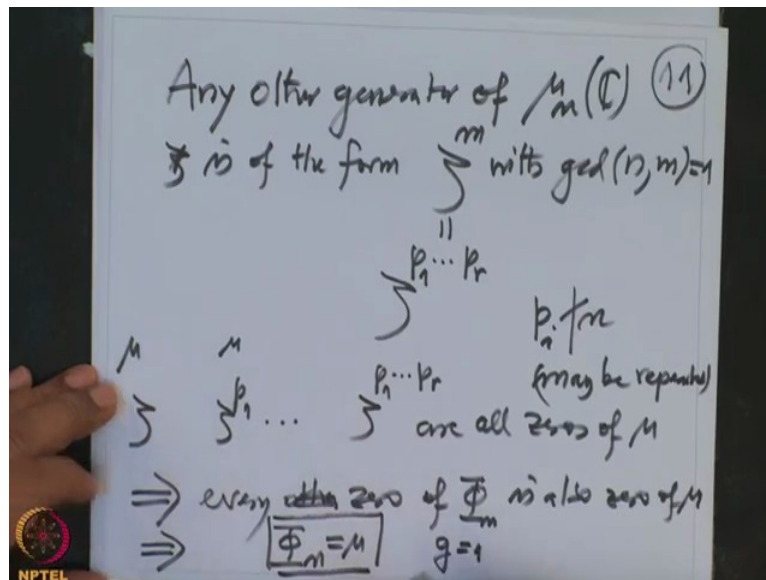 Any other generator of μ_n(ℂ) (11)
is of the form ζ^m with gcd(n, m)=1
||
ζ^{p_1 ⋯ p_r}
p_i ∤ n
(may be repeated)
μ μ
ζ ζ^{p_1} ⋯ ζ^{p_1⋯p_r} are all zeros of μ
⇒ every zero of Φ_n is also zero of μ
⇒ Φ_n = μ g=1
NPTEL